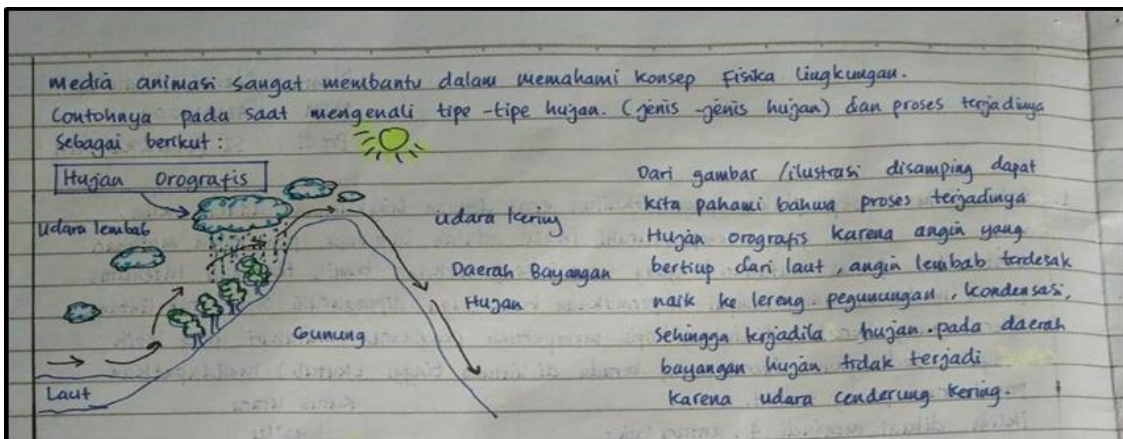 media animasi sangat membantu dalam memahami konsep Fisika Lingkungan.
Contohnya pada saat mengenali tipe-tipe hujan. (jenis-jenis hujan) dan proses terjadinya
sebagai berikut :
Hujan Orografis
Udara lembab
Laut
Gunung
udara kering
Daerah Bayangan
Hujan
Dari gambar /ilustrasi disamping dapat
kita pahami bahwa proses terjadinya
Hujan orografis karena angin yang
bertiup dari laut, angin lembab terdesak
naik ke lereng pegunungan, kondensasi,
Sehingga terjadila hujan. pada daerah
bayangan hujan tidak terjadi
karena udara cenderung kering.